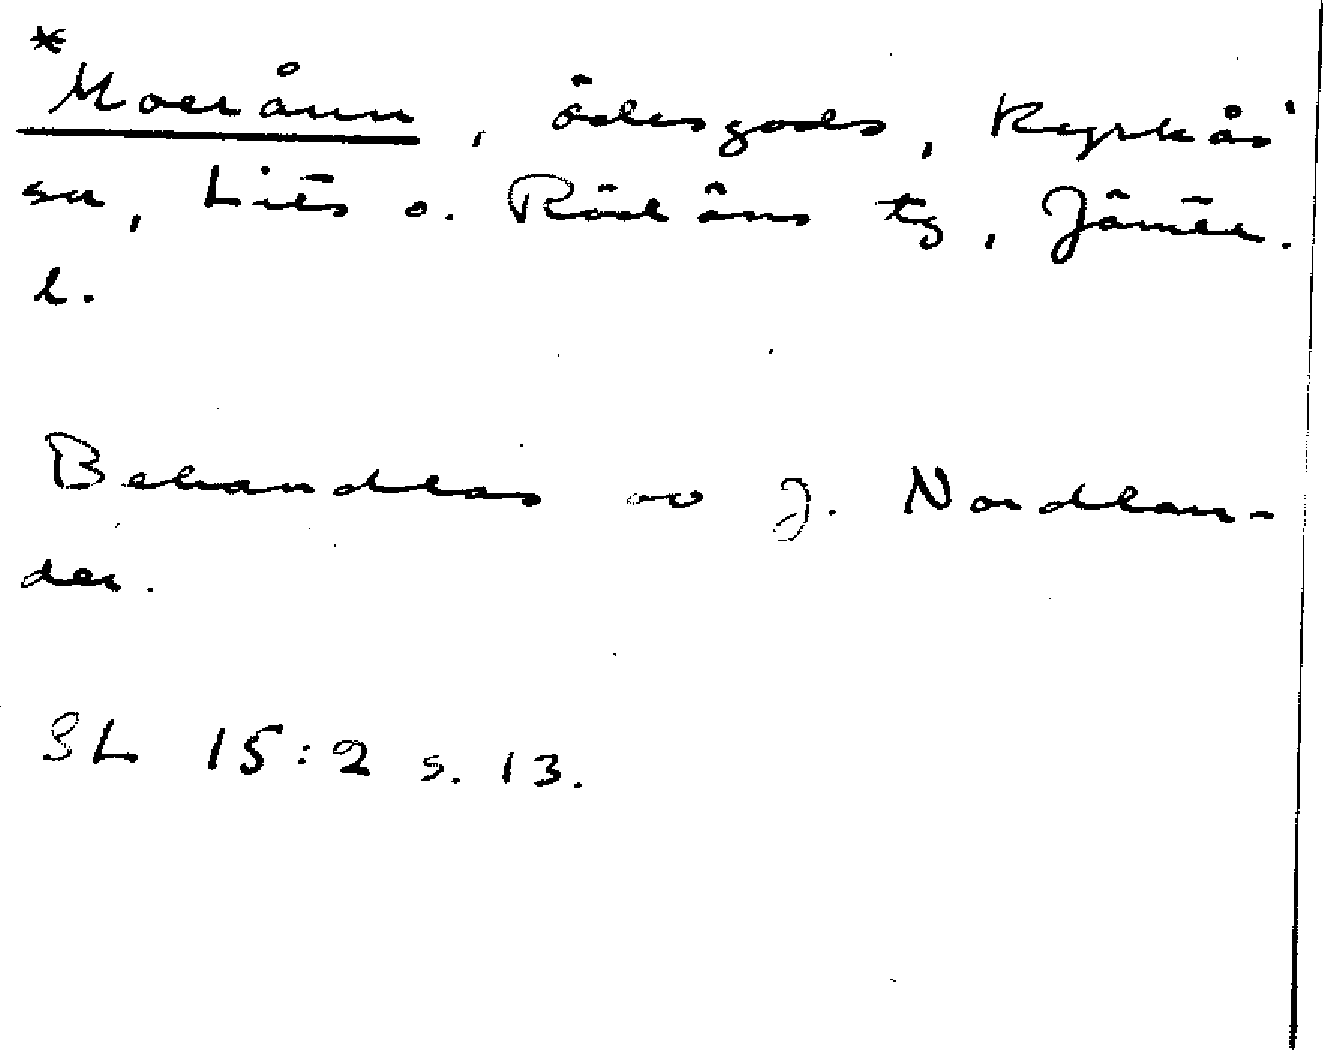 *
Moeránn, ödesgods, Kyrkås
sn, Lits o. Rödöns tg, Jämtl.
l.
Behandlas av J. Nordlan-
der.
SL 15:2 s. 13.